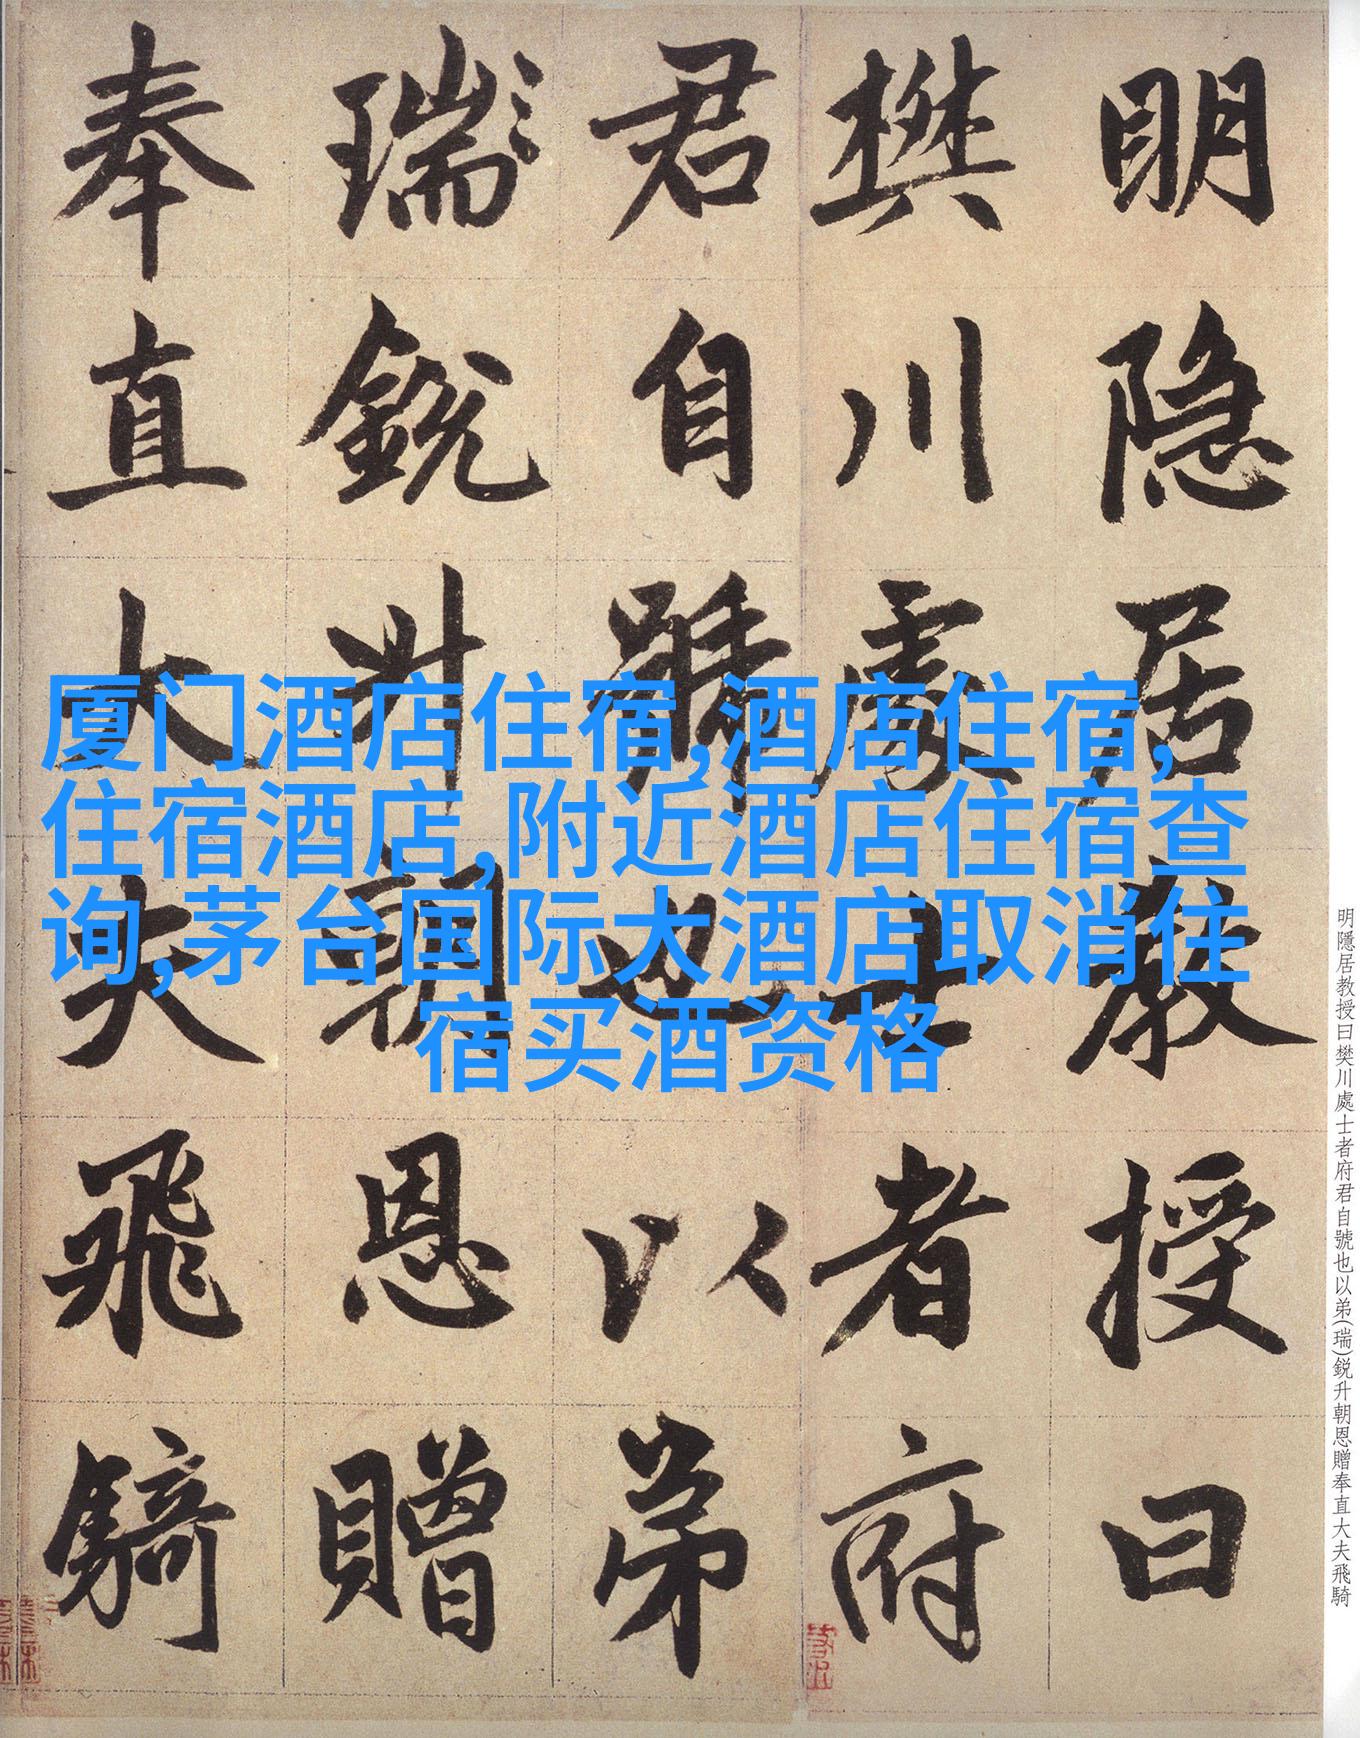 明隐居教授曰
樊川處士者府
君自號也以弟
瑞銳升朝恩贈
奉直大夫飛騎
厦门酒店住宿,酒店住宿,
住宿酒店,附近酒店住宿查
询,茅台国际大酒店取消住
宿买酒资格
明隱居教授曰樊川處士者府君自號也以弟(瑞)鋭升朝恩贈奉直大夫飛騎